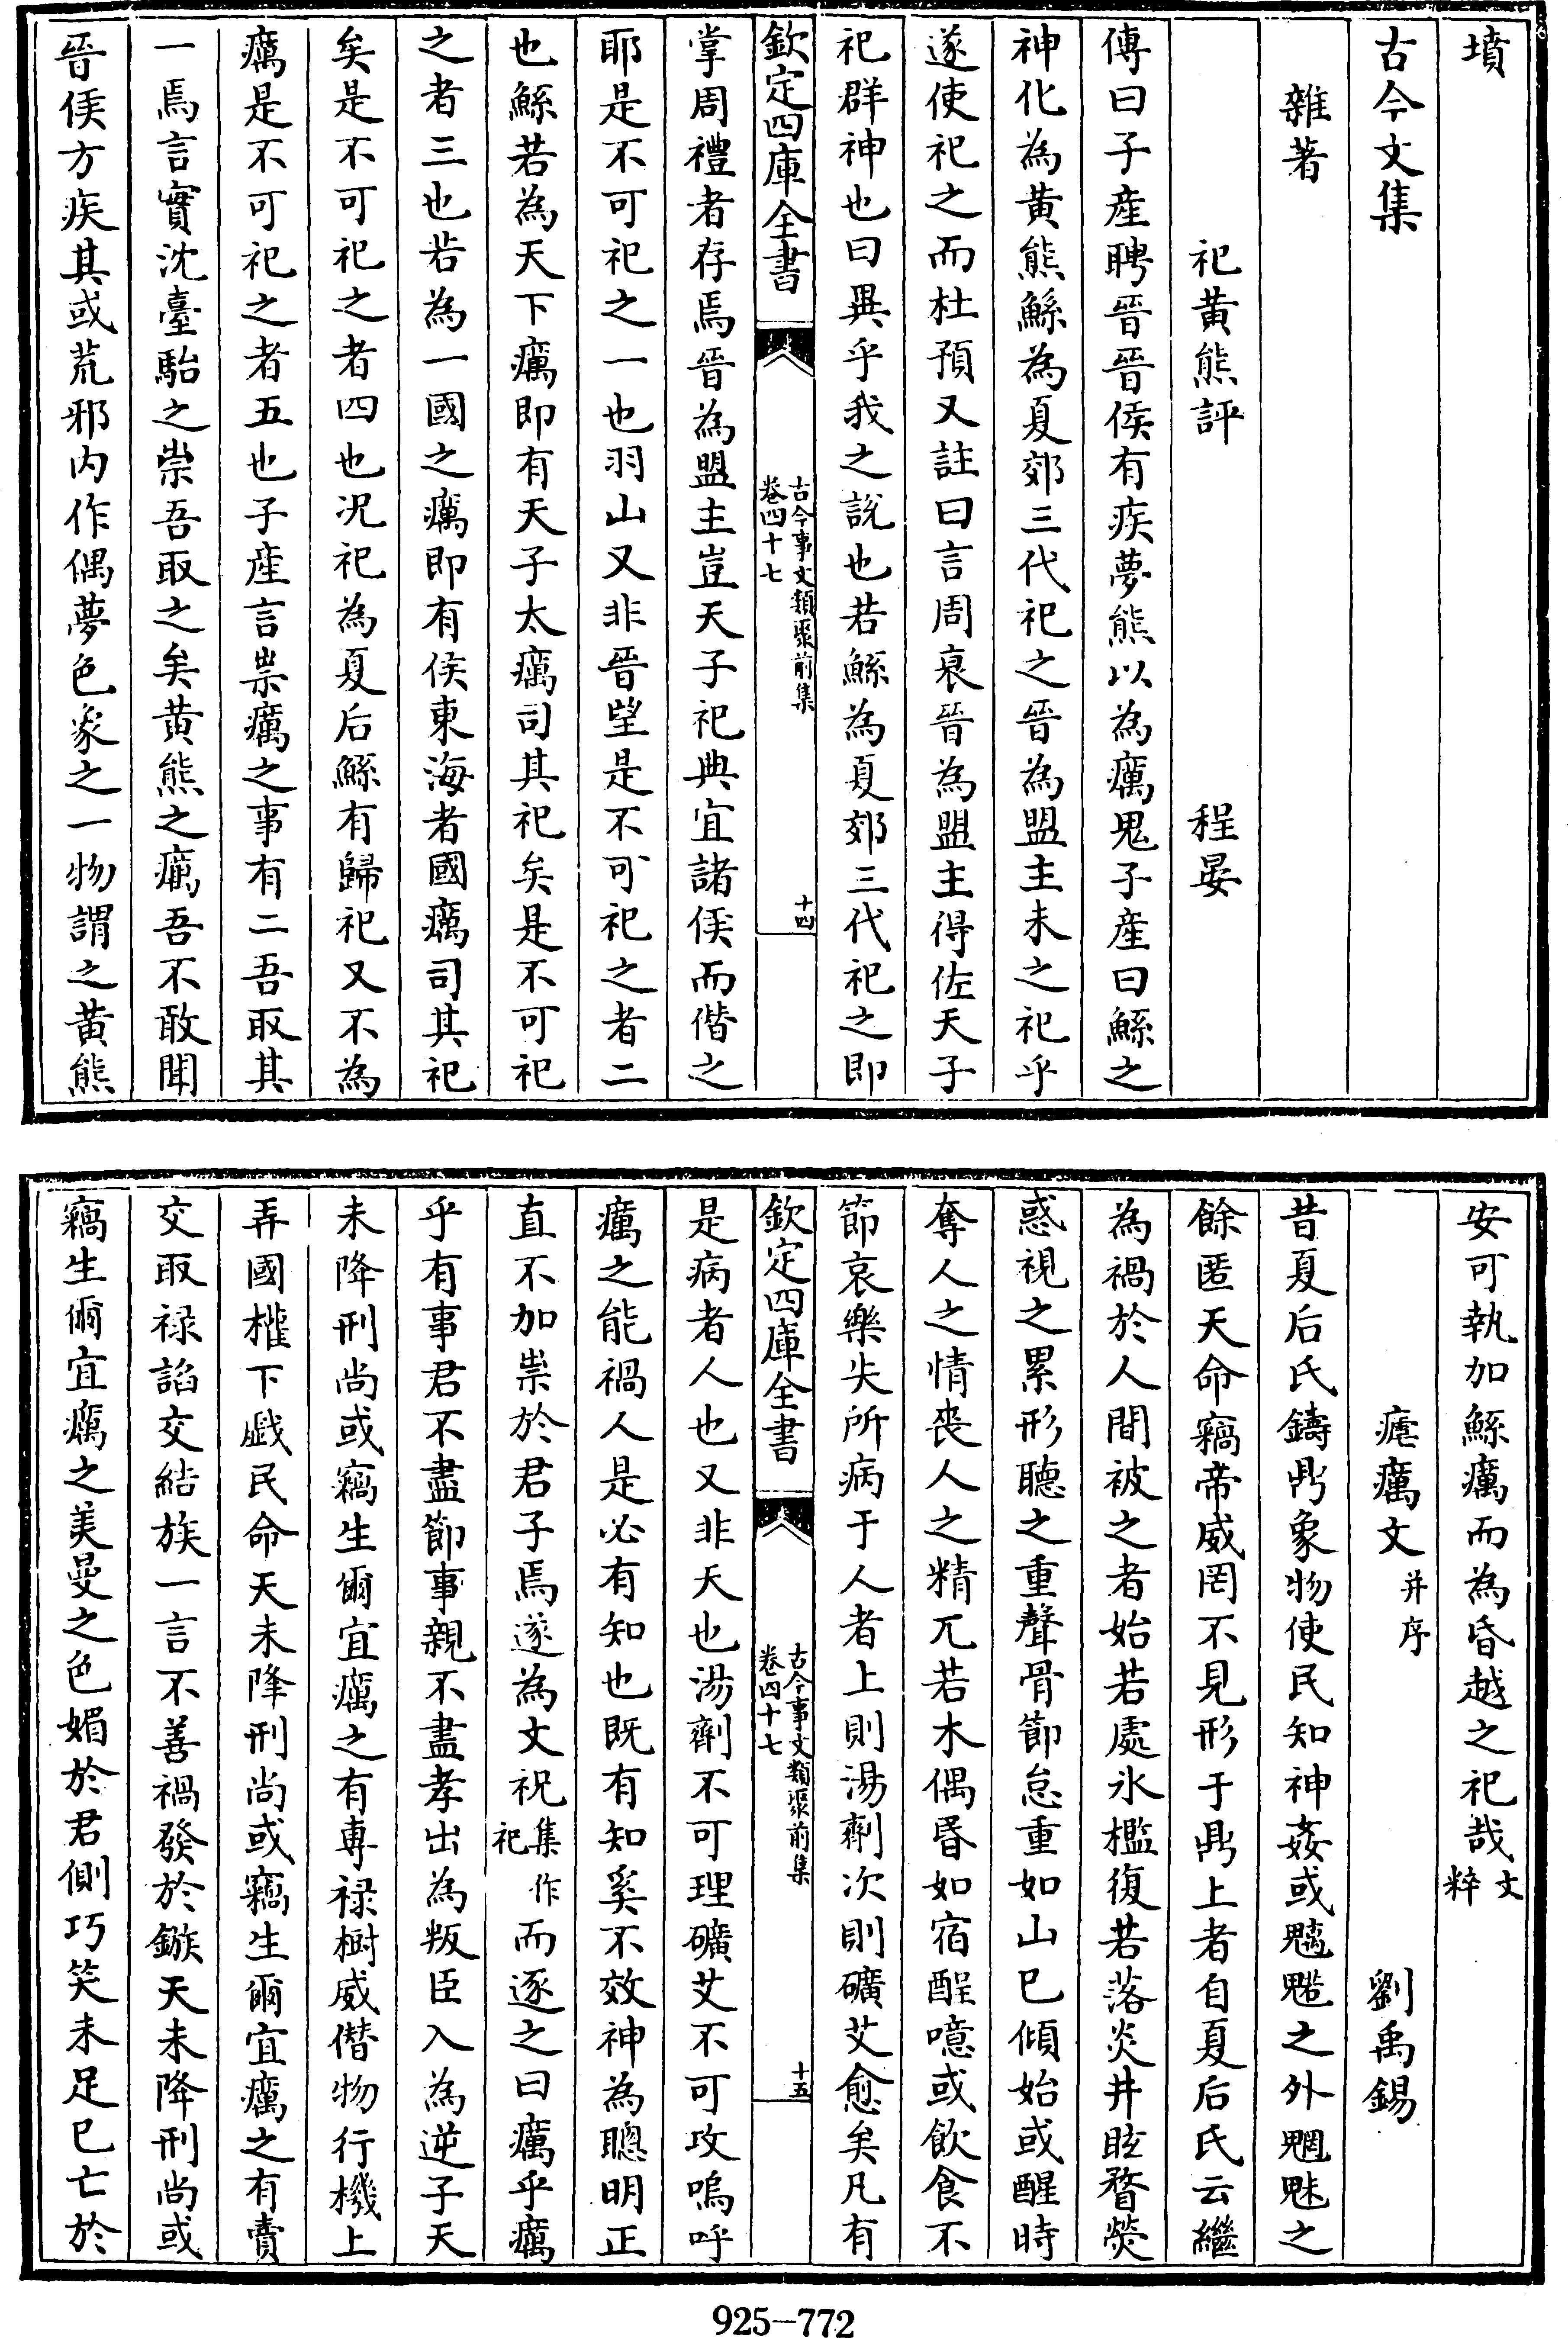 墳
古今文集
雜著
祀黄熊評　程晏
傅曰子産聘晉晉侯有疾夢熊以為癘鬼子産曰鯀之
神化為黄熊鯀為夏郊三代祀之晉為盟主未之祀乎
遂使祀之而杜預又註曰言周衰晉為盟主得佐天子
祀群神也曰異乎我之說也若鯀為夏郊三代祀之即
欽定四庫全書
古今事文類聚前集
卷四十七
十四
掌周禮者存焉晉為盟主豈天子祀典宜諸侯而偕之
耶是不可祀之一也羽山又非晉望是不可祀之者二
也鯀若為天下癘即有天子太癘司其祀矣是不可祀
之者三也若為一國之癘即有侯東海者國癘司其祀
矣是不可祀之者四也况祀為夏后鯀有歸祀又不為
癘是不可祀之者五也子産言祟癘之事有二吾取其
一焉言實沈臺駘之祟吾取之矣黄熊之癘吾不敢聞
晉侯方疾其或荒邪内作偶夢色象之一物謂之黄熊
安可執加鯀癘而為昏越之祀哉文粹
瘧癘文并序　劉禹錫
昔夏后氏鑄鼎象物使民知神姦或魑魅之外魍魅之
餘匿天命竊帝威罔不見形于鼎上者自夏后氏云繼
為禍於人間被之者始若處氷檻復若落炎井眩瞀熒
惑視之累形聽之重聲骨節怠重如山已傾始或醒時
奪人之情喪人之精兀若木偶昬如宿酲噫或飲食不
節哀樂失所病于人者上則湯劑次則礦艾愈矣凡有
欽定四庫全書
古今事文類聚前集
卷四十七
十五
是病者人也又非天也湯劑不可理礦艾不可攻嗚呼
癘之能禍人是必有知也既有知奚不效神為聰明正
直不加祟於君子焉遂為文祝集作祀而逐之曰癘乎癘
乎有事君不盡節事親不盡孝出為叛臣入為逆子天
未降刑尚或竊生爾宜癘之有專禄樹威僭物行機上
弄國權下戯民命天未降刑尚或竊生爾宜癘之有賣
交取禄諂交結族一言不善禍發於鏃天未降刑尚或
竊生爾宜癘之美曼之色媚於君側巧笑未足已亡於
925-772